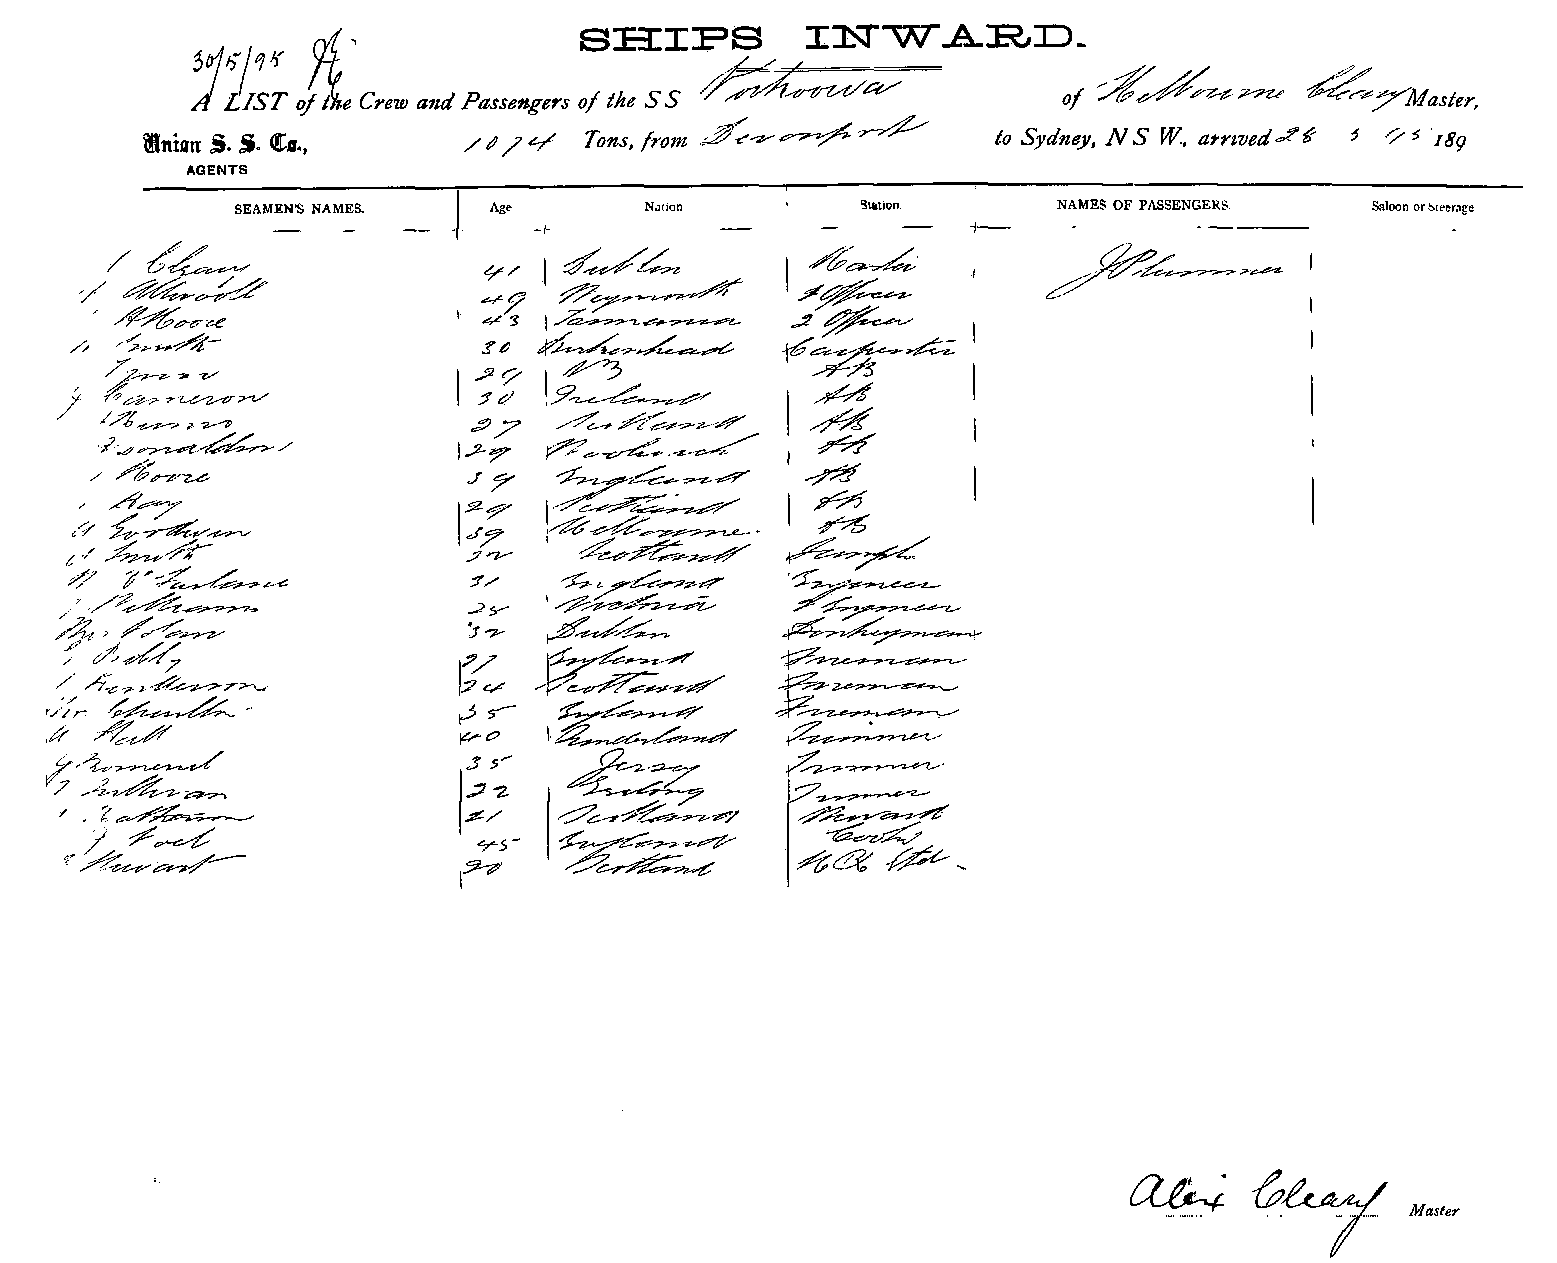 SHIPS INWARD.
30/5/95
A LIST of the Crew and Passengers of the SS of Melbourne Cleary Master,
Union S. S. Co., 1074 Tons, from Devonport to Sydney, N S W., arrived 28 5 95 189
AGENTS
SEAMEN'S NAMES. Age Nation Station. NAMES OF PASSENGERS. Saloon or Steerage
Cleary 41 Dublin Master J Plummer
49 Weymouth 1 Officer
A Moore 43 Tasmania 2 Officer
Smith 30 Birkenhead Carpenter
29 NB AB
Cameron 30 Ireland AB
Munro 27 Scotland AB
Donaldson 29 Woolwich AB
Moore 39 England AB
Ray 29 Scotland AB
Goodwin 39 Melbourne AB
Smith 32 Scotland Lamps
31 England Engineer
Williams 28 Victoria 2 Engineer
32 Dublin Donkeyman
27 England Fireman
Henderson 24 Scotland Fireman
35 England Fireman
Hall 40 Sunderland Trimmer
35 Jersey Trimmer
Sullivan 22 Geelong Trimmer
21 Scotland Steward
45 England Cook
Stewart 20 Scotland
Alex Cleary Master